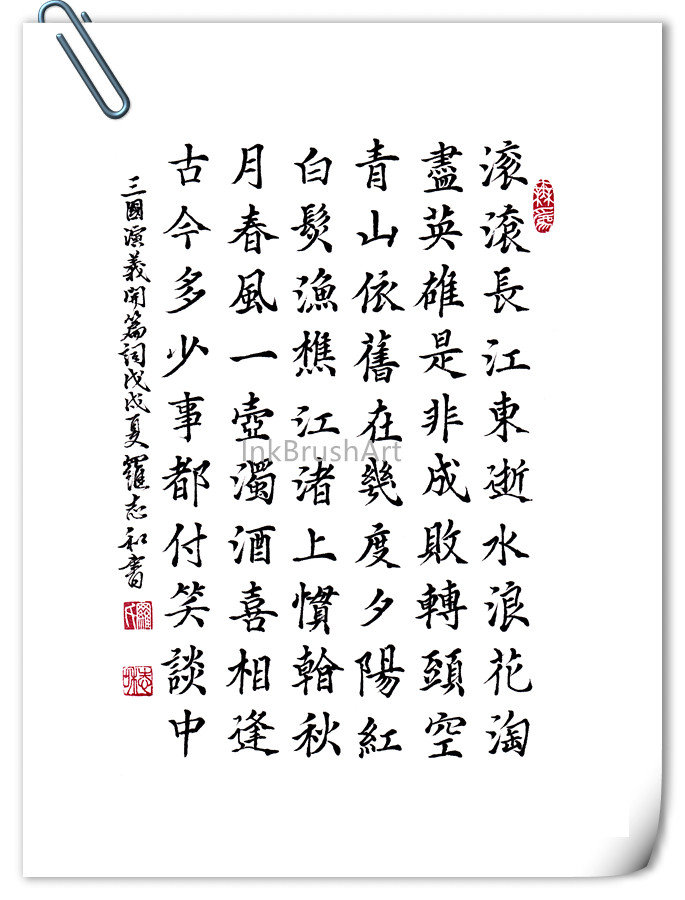 滚滚長江東逝水浪花淘
盡英雄是非成敗轉頭空
青山依舊在幾度夕陽紅
白髮漁樵江渚上慣看秋
月春風一壺濁酒喜相逢
古今多少事都付笑談中
三國演義開篇詞戊戌夏羅志和書
羅氏
志和
InkBrushArt